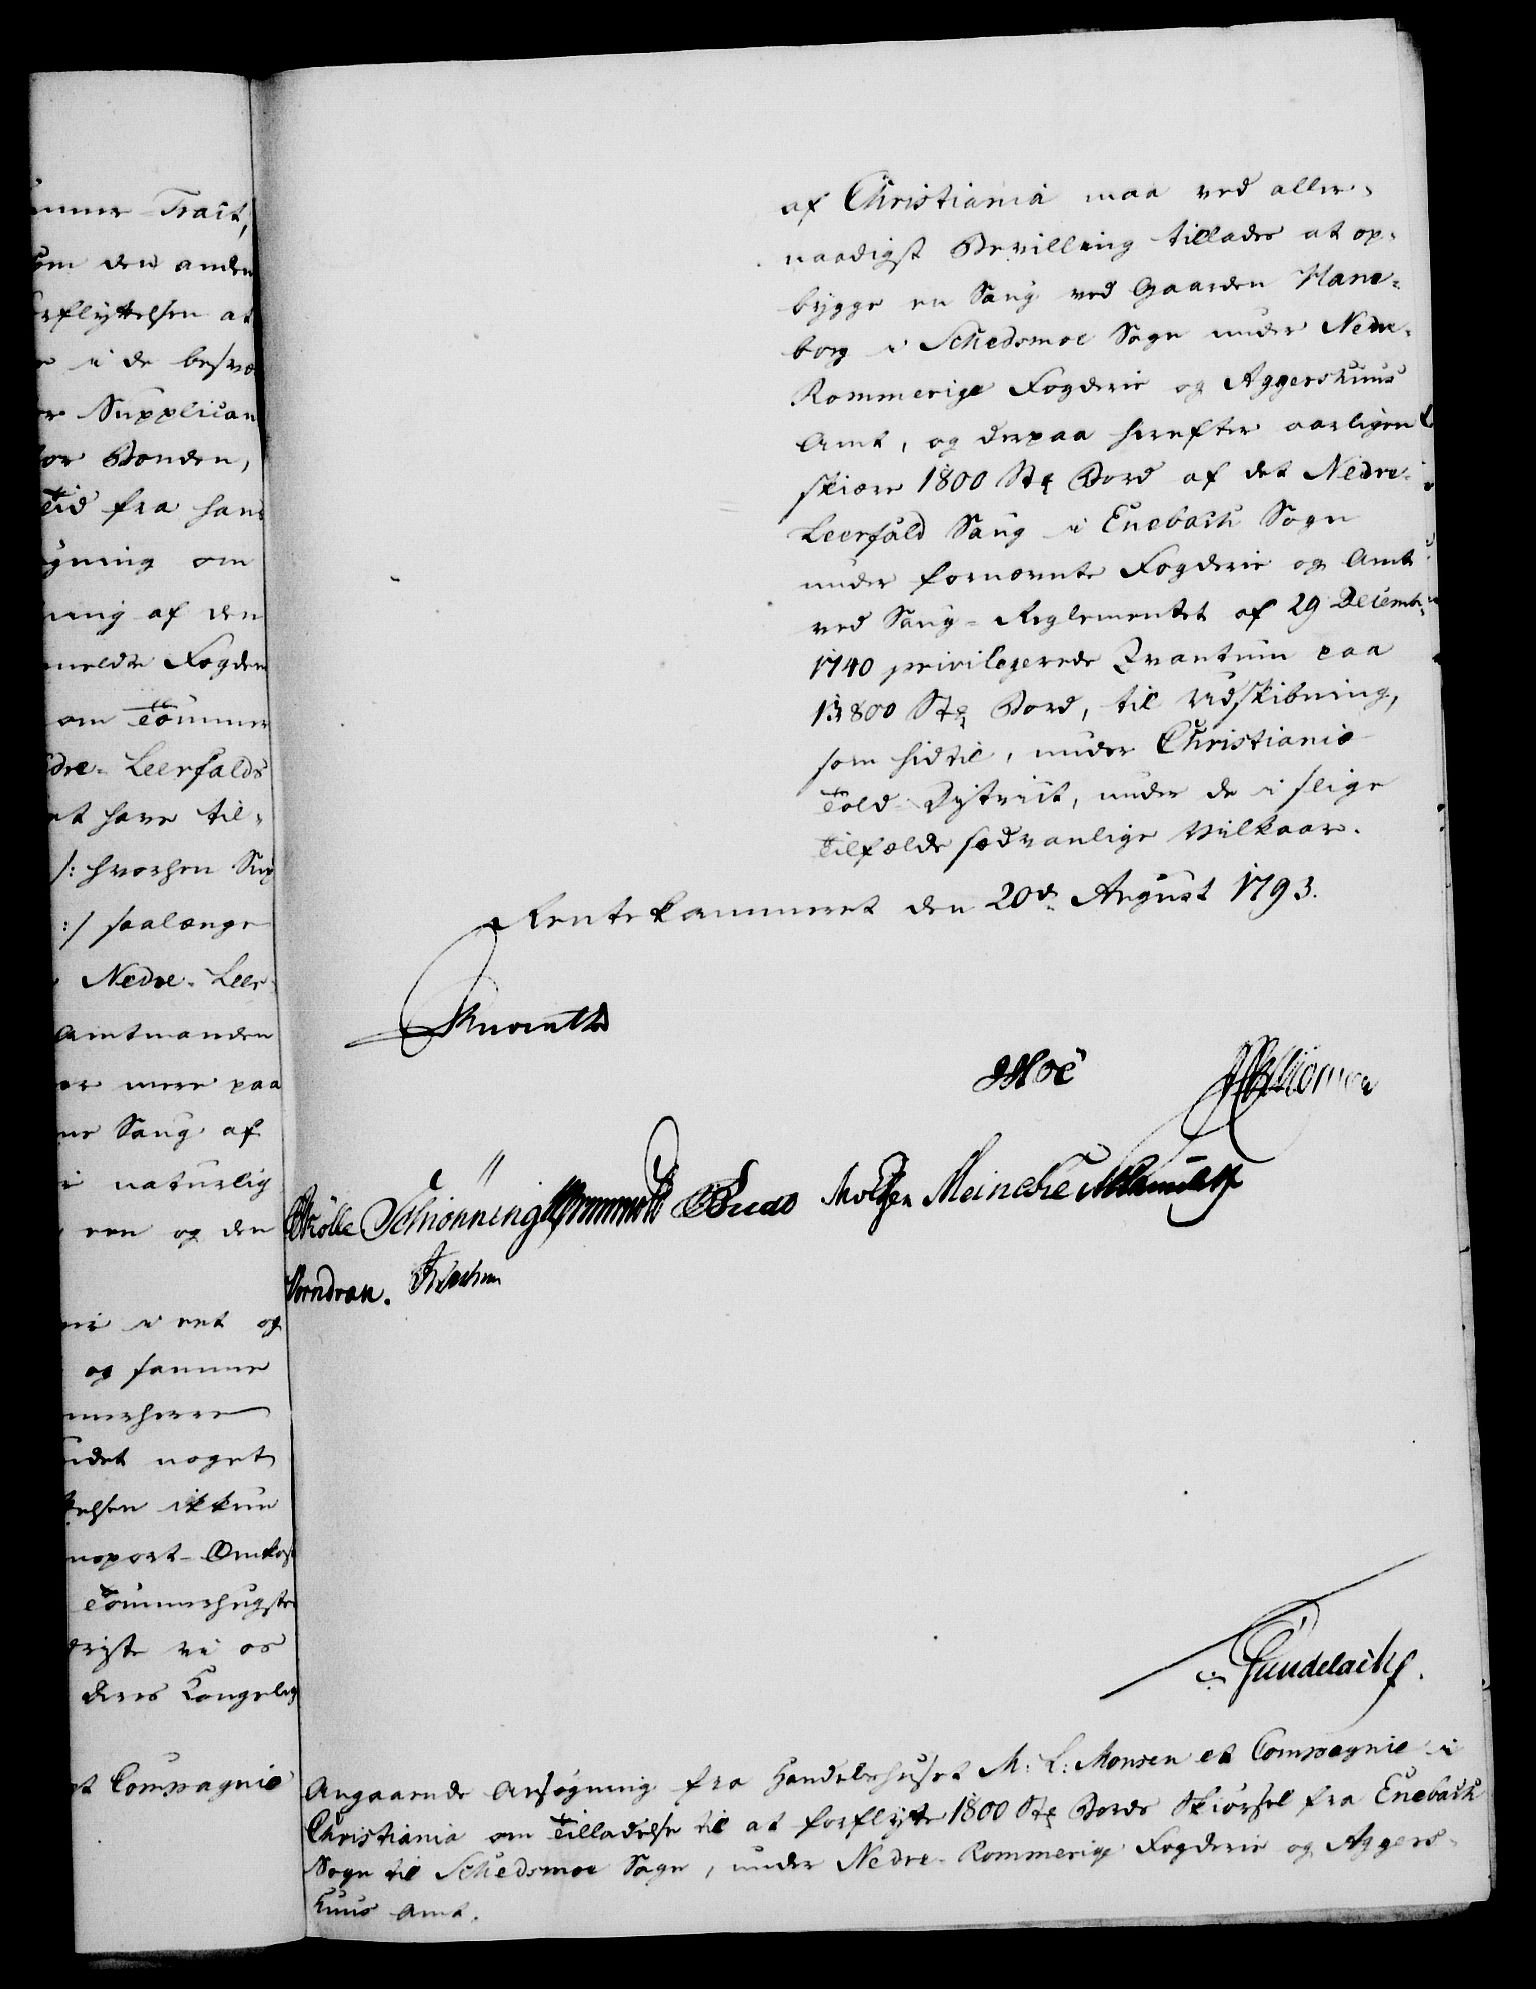 unner-Tract,
om den anden
rflyttelsen at
e i de besvæ
or Supplican
for Bonden,
Tid fra hans
gning om
ning af den
meldte Fogder
om Tømmer
dre-Leerfalds
et have til-
/: hvorhen Sup
:/ saalænge
Nedre-Leer-
Amtmanden
er mere paa
ne Saug af
i naturlig
een og den
i eet og
og samme
merherre
idet noget
elsen ikkun
nsport-Omkos
Tømmerhugste
driste vi os
deres Kongelig
et Compagnie
af Christiania maa ved aller-
naadigst Bevilling tillades at op-
bygge en Saug ved Gaarden Hane-
borg i Schedsmoe Sogn under Nedre-
Rommerige Fogderie og Aggershuus
Amt, og derpaa herefter aarligen
skiære 1800 Stk Bord af det Nedre-
Leerfald Saug i Enebach Sogn
under fornævnte Fogderie og Amt
ved Saug-Reglementet af 29 Decemb.
1740 privilegerede Qvantum paa
13800 Stk Bord, til Udskibning,
som hidtil, under Christiania
Told-District, under de i slige
Tilfælde sædvanlige Vilkaar.
Rentekammeret den 20de August 1793.
Knuth
JMoe
Schiønning Meincke
Wormdran.
Gundelach
Angaaende Ansøgning fra Handelshuset M: L: Monsen et Compagnie i
Christiania om Tilladelse til at forflytte 1800 Stk Bords Skiørsel fra Enebach
Sogn til Schedsmoe Sogn, under Nedre-Rommerige Fogderie og Aggers-
huus Amt.